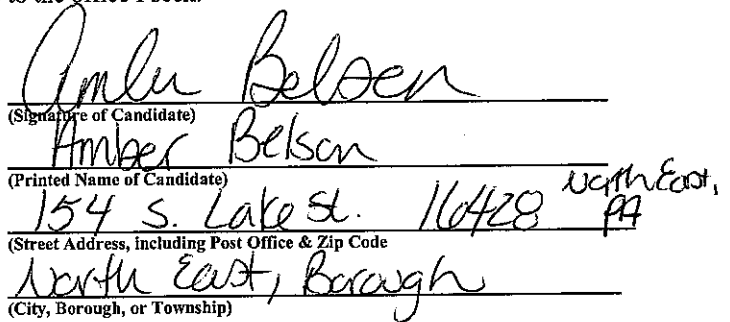 to the office I seek.
Amber Belson
(Signature of Candidate)
Amber Belson
(Printed Name of Candidate)
154 S. Lake St. 16428 North East, PA
(Street Address, including Post Office & Zip Code
North East, Borough
(City, Borough, or Township)